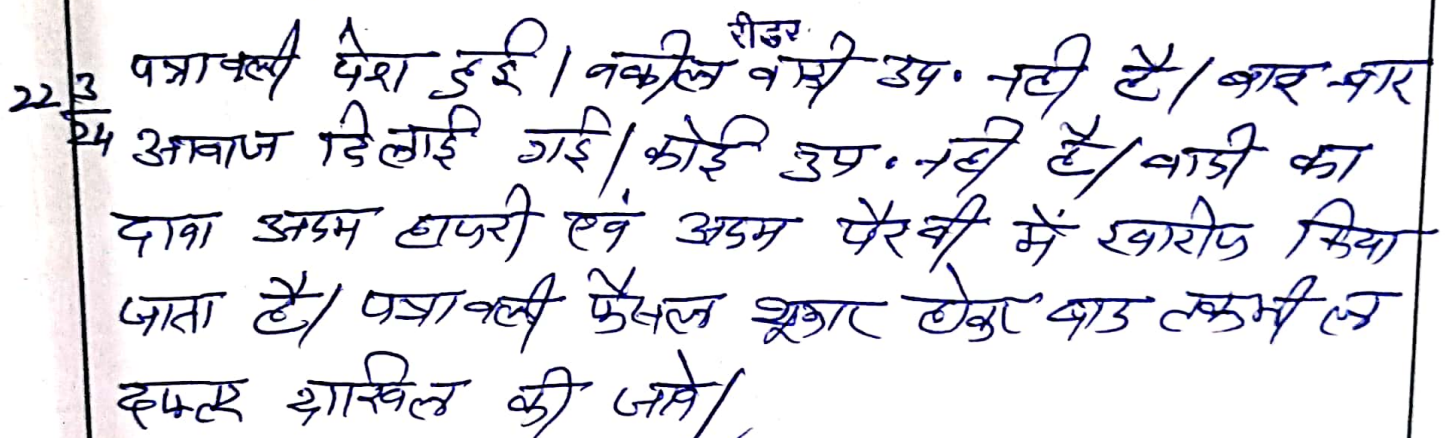 रीडर
22 3/24 पत्रावली पेश हुई। वकील वादी उप. नही है। बार बार
आवाज दिलाई गई। कोई उप. नही है। वादी का
दावा अदम हाजरी एवं अदम पैरवी में खारीज किया
जाता है। पत्रावली फैसल शूमार होकर बाद तकमील
दफ्तर दाखिल की जावे।